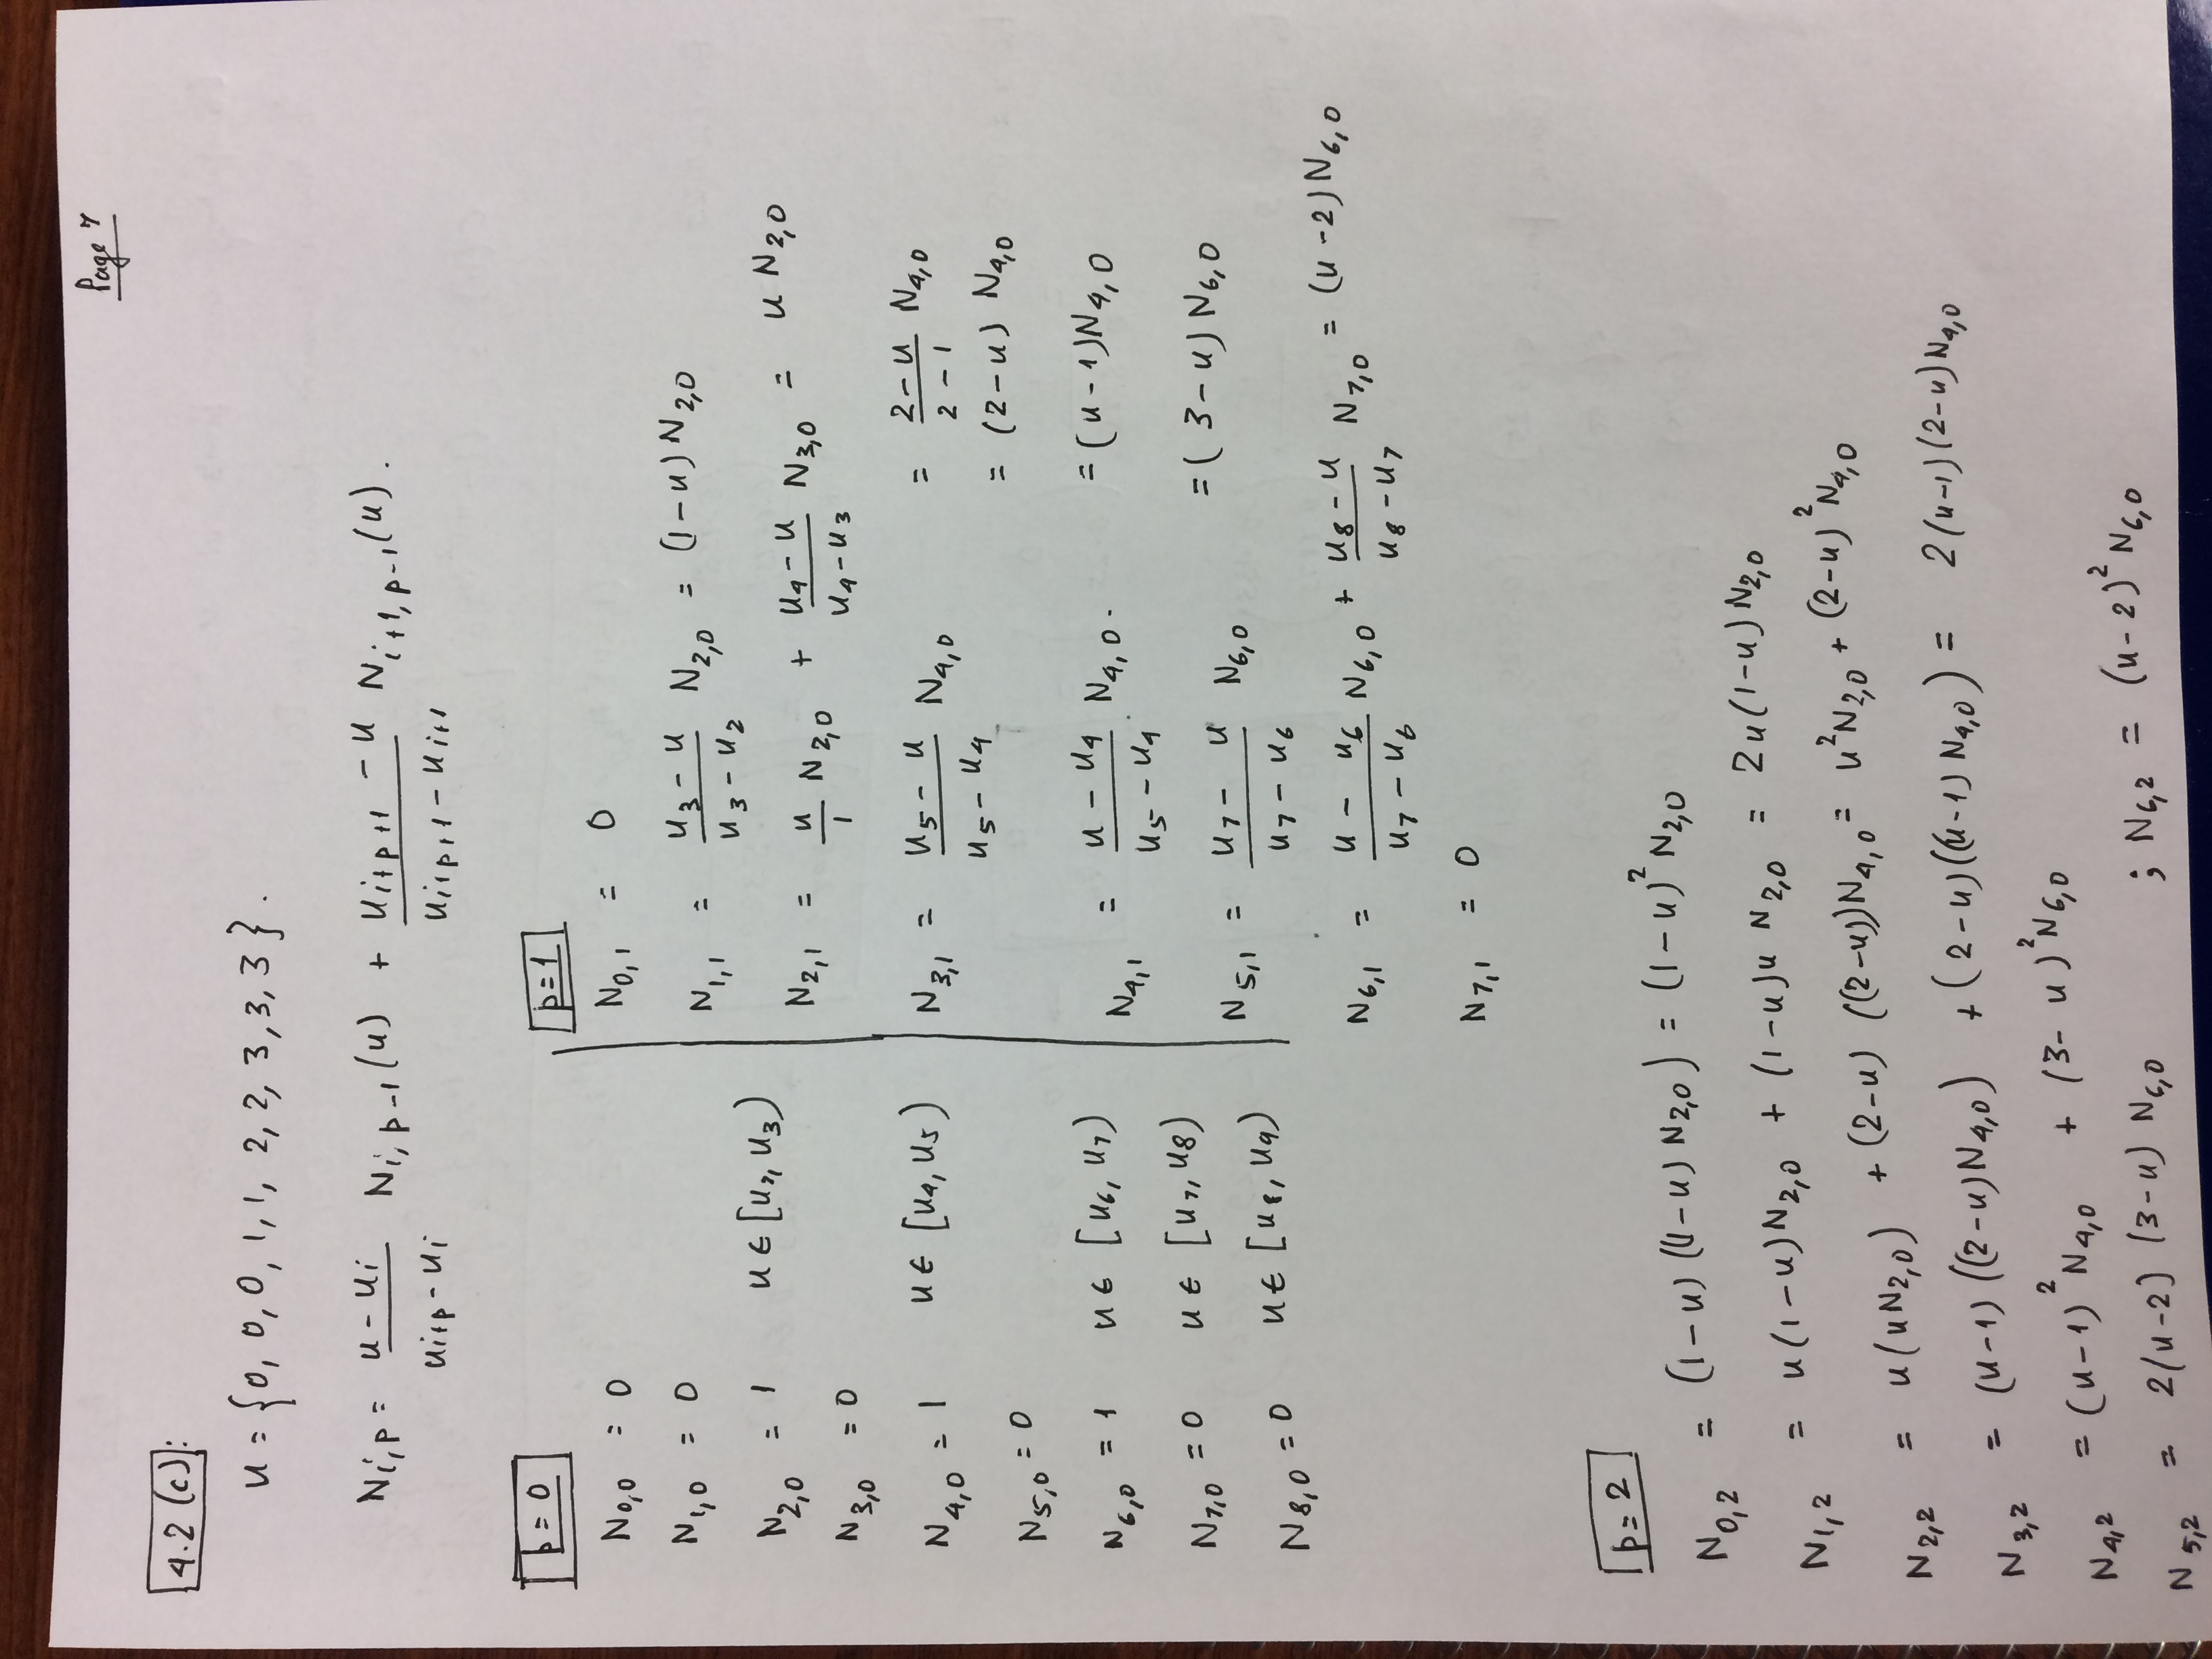 Page 7
4.2 (c):
u = {0, 0, 0, 1, 1, 2, 2, 3, 3, 3}.
N_{i,p} = \frac{u - u_i}{u_{i+p} - u_i} N_{i,p-1}(u) + \frac{u_{i+p+1} - u}{u_{i+p+1} - u_{i+1}} N_{i+1,p-1}(u).
p = 0
N_{0,0} = 0
N_{1,0} = 0
N_{2,0} = 1 u ∈ [u_2, u_3)
N_{3,0} = 0
N_{4,0} = 1 u ∈ [u_4, u_5)
N_{5,0} = 0
N_{6,0} = 1 u ∈ [u_6, u_7)
N_{7,0} = 0 u ∈ [u_7, u_8)
N_{8,0} = 0 u ∈ [u_8, u_9)
p = 1
N_{0,1} = 0
N_{1,1} = \frac{u_3 - u}{u_3 - u_2} N_{2,0} = (1-u) N_{2,0}
N_{2,1} = \frac{u}{1} N_{2,0} + \frac{u_4 - u}{u_4 - u_3} N_{3,0} = u N_{2,0}
N_{3,1} = \frac{u_5 - u}{u_5 - u_4} N_{4,0} = \frac{2-u}{2-1} N_{4,0}
= (2-u) N_{4,0}
N_{4,1} = \frac{u - u_4}{u_5 - u_4} N_{4,0}. = (u-1) N_{4,0}
N_{5,1} = \frac{u_7 - u}{u_7 - u_6} N_{6,0} = (3-u) N_{6,0}
N_{6,1} = \frac{u - u_6}{u_7 - u_6} N_{6,0} + \frac{u_8 - u}{u_8 - u_7} N_{7,0} = (u-2) N_{6,0}
N_{7,1} = 0
p = 2
N_{0,2} = (1-u) ((1-u) N_{2,0}) = (1-u)^2 N_{2,0}
N_{1,2} = u(1-u) N_{2,0} + (1-u)u N_{2,0} = 2u(1-u) N_{2,0}
N_{2,2} = u(u N_{2,0}) + (2-u) ((2-u)) N_{4,0} = u^2 N_{2,0} + (2-u)^2 N_{4,0}
N_{3,2} = (u-1) ((2-u) N_{4,0}) + (2-u)((u-1) N_{4,0}) = 2(u-1)(2-u) N_{4,0}
N_{4,2} = (u-1)^2 N_{4,0} + (3-u)^2 N_{6,0}
N_{5,2} = 2(u-2) (3-u) N_{6,0} ; N_{6,2} = (u-2)^2 N_{6,0}